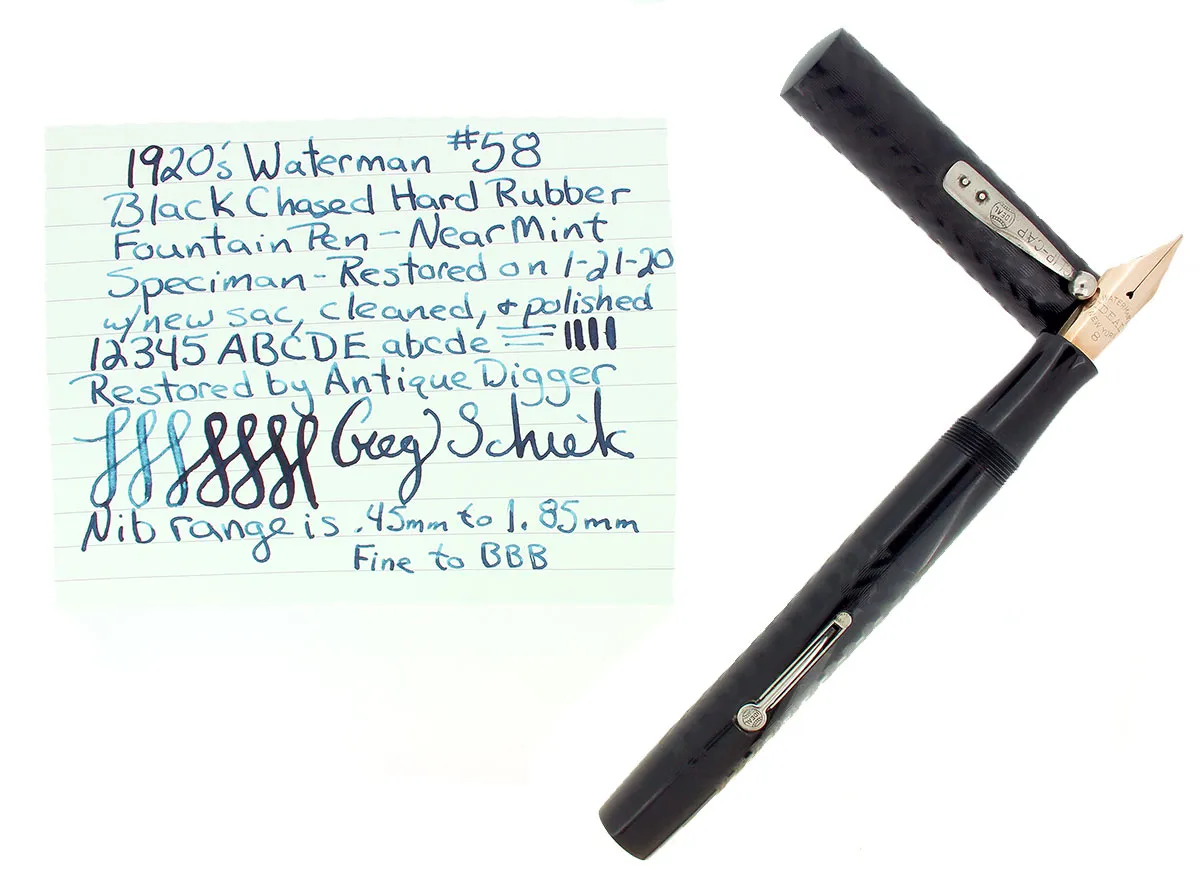 1920's Waterman #58
Black Chased Hard Rubber
Fountain Pen - Near Mint
Speciman - Restored on 1-21-20
w/new sac, cleaned, & polished
12345 ABCDE abcde
Restored by Antique Digger
Greg Schiek
Nib range is .45mm to 1.85mm
Fine to BBB
IDEAL
CLIP-CAP
WATERMAN
IDEAL
NEW YORK
8
IDEAL